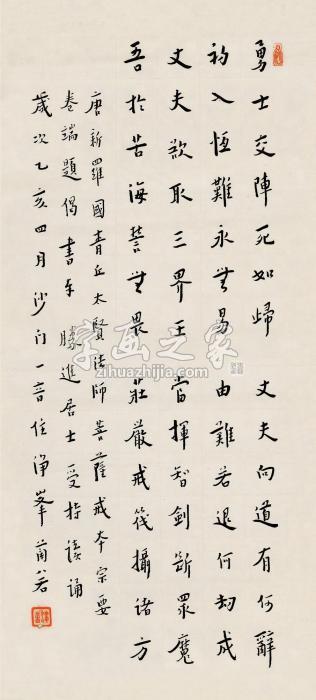 勇士交陣死如歸　丈夫向道有何辭
初入恆難永無易　由難若退何劫成
丈夫欲取三界王　當揮智劍斷眾魔
吾於苦海誓無畏　莊嚴戒筏攝諸方
唐新羅國青丘太賢法師菩薩戒本宗要
卷端題偈書奉　勝進居士受持讀誦
歲次乙亥四月沙門一音住淨峯蘭若
字画之家
zihuazhijia.com